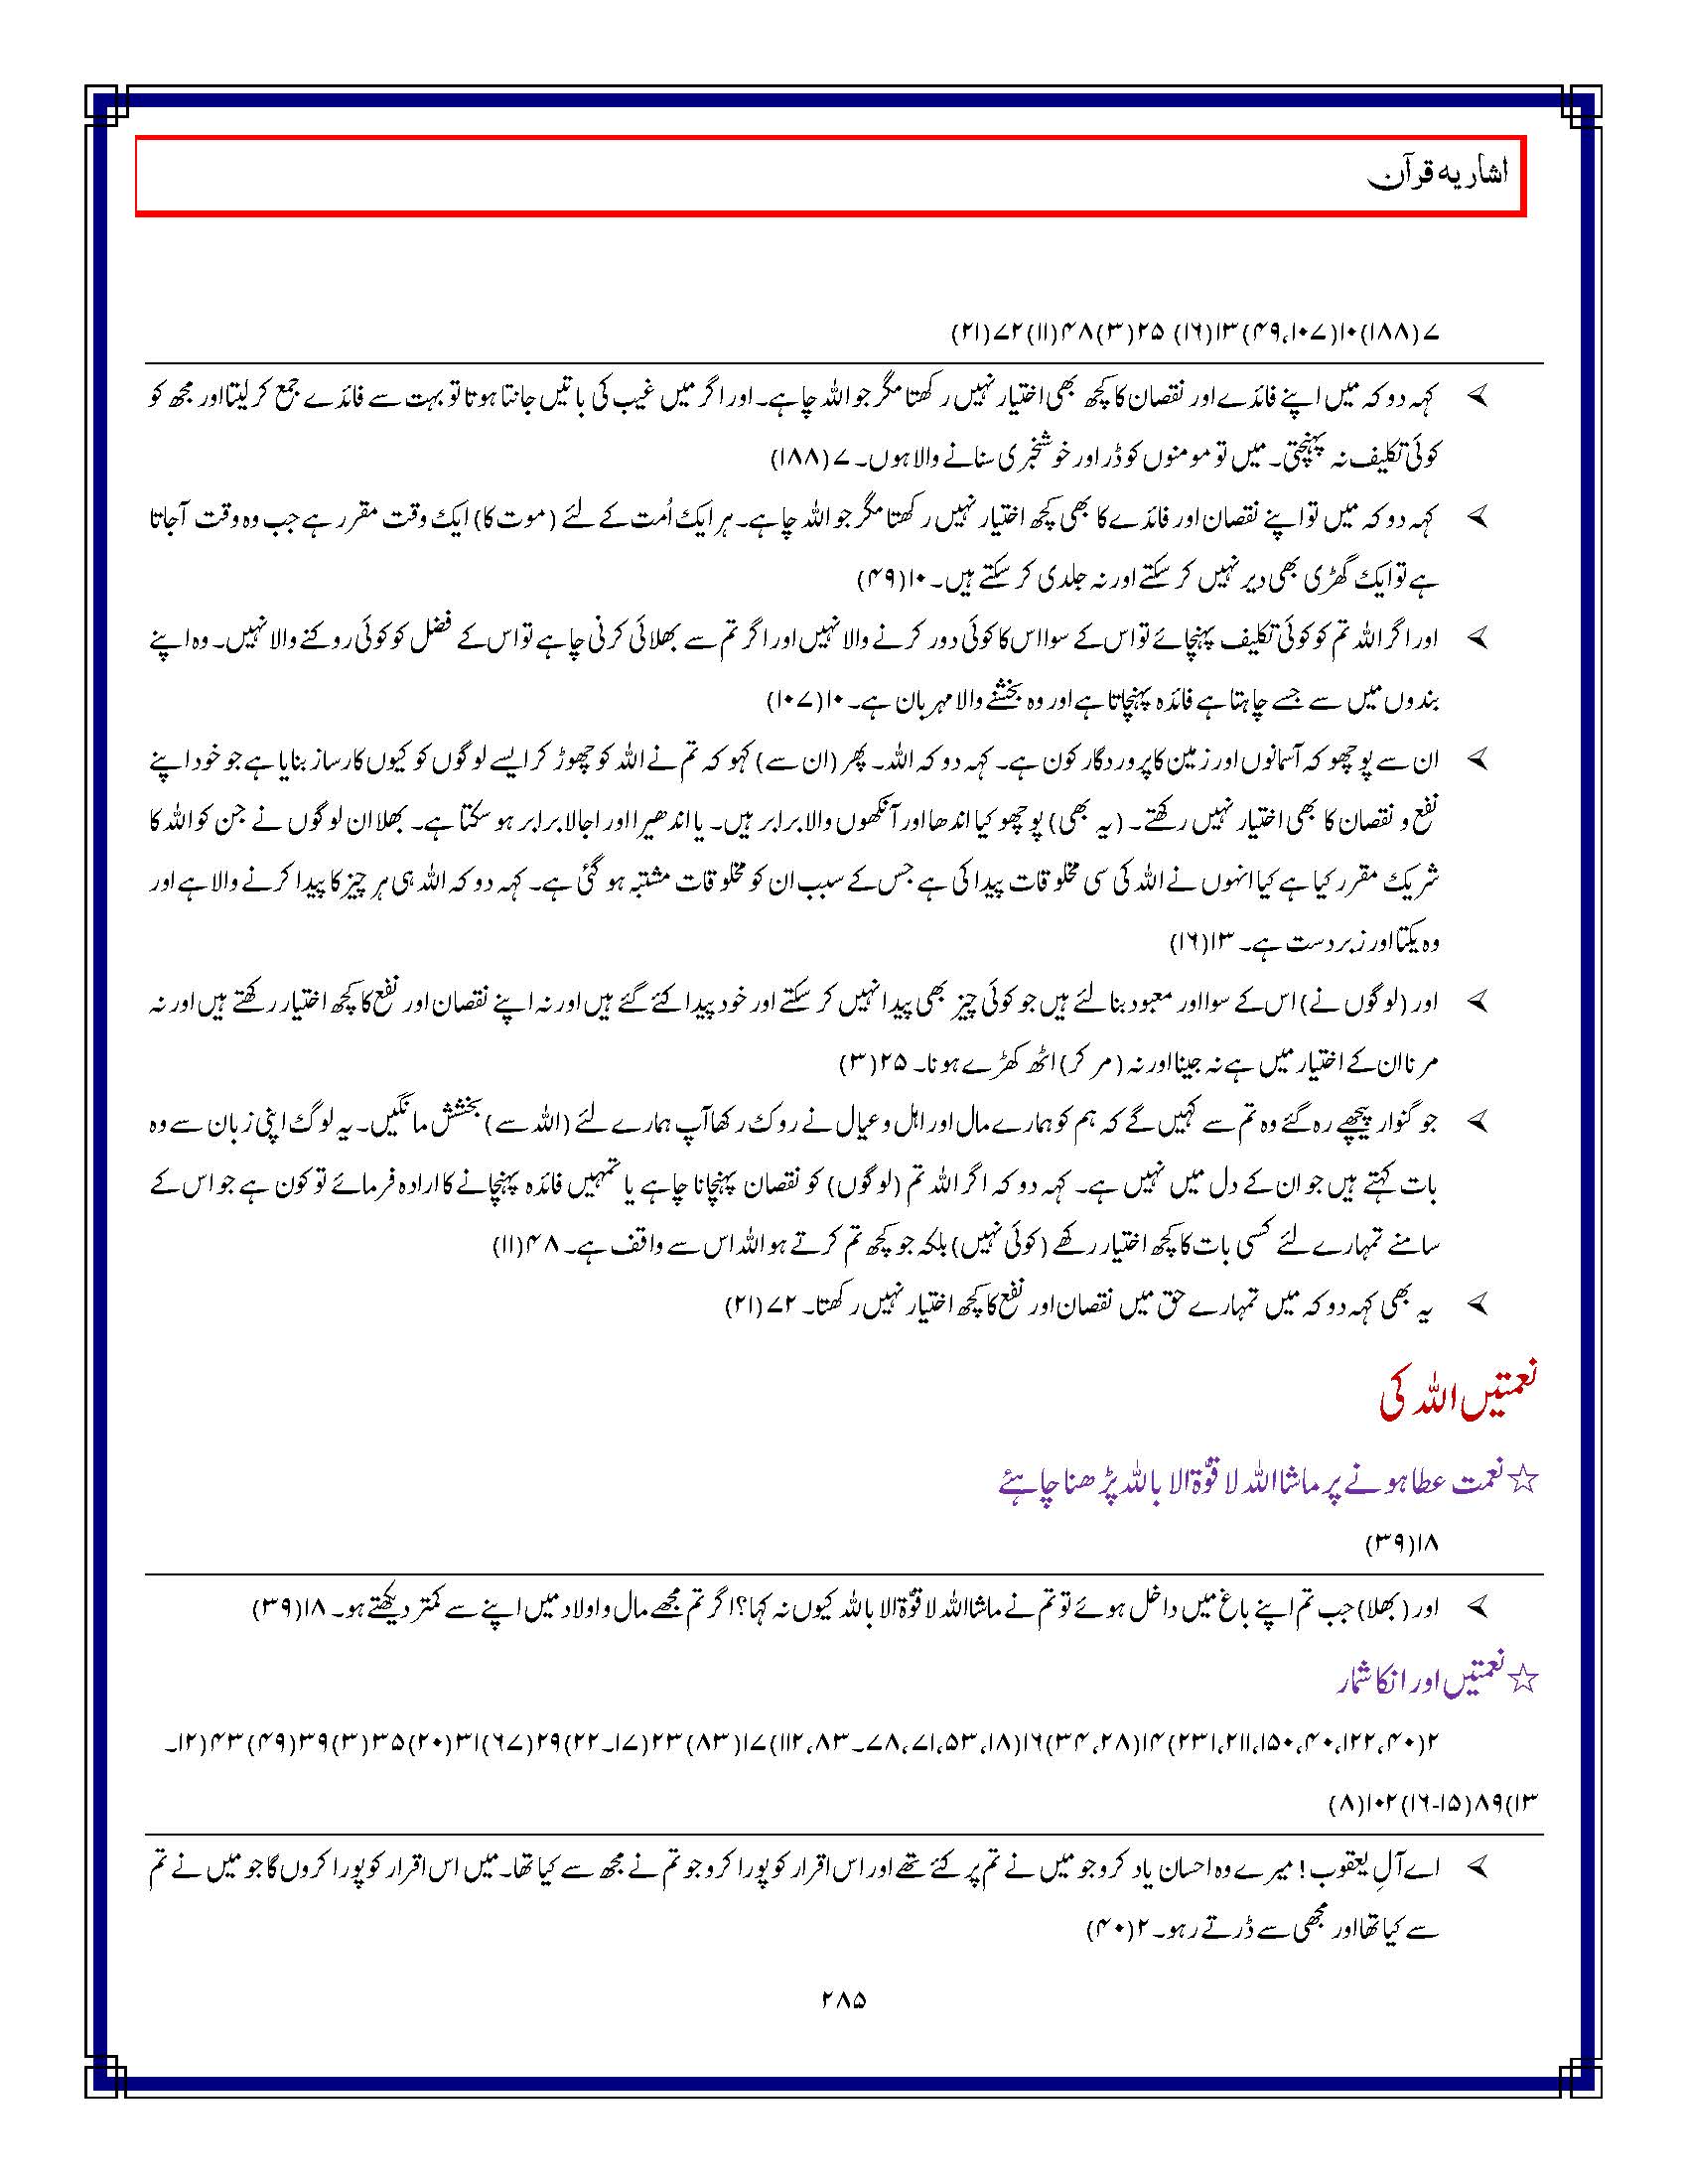 اشاریہ قرآن
۷(۱۸۸)۱۰(۴۹،۱۰۷)۱۳(۱۶) ۲۵(۳)۴۸(۱۱)۷۲(۲۱)
کہہ دو کہ میں اپنے فائدے اور نقصان کا کچھ بھی اختیار نہیں رکھتا مگر جو اللہ چاہے۔ اور اگر میں غیب کی باتیں جانتا ہوتا تو بہت سے فائدے جمع کر لیتا اور مجھ کو
کوئی تکلیف نہ پہنچتی۔ میں تو مومنوں کو ڈر اور خوشخبری سنانے والا ہوں۔ ۷(۱۸۸)
کہہ دو کہ میں تو اپنے نقصان اور فائدے کا بھی کچھ اختیار نہیں رکھتا مگر جو اللہ چاہے۔ ہر ایک اُمت کے لئے (موت کا) ایک وقت مقرر ہے جب وہ وقت آ جاتا
ہے تو ایک گھڑی بھی دیر نہیں کر سکتے اور نہ جلدی کر سکتے ہیں۔ ۱۰(۴۹)
اور اگر اللہ تم کو کوئی تکلیف پہنچائے تو اس کے سوا اس کا کوئی دور کرنے والا نہیں اور اگر تم سے بھلائی کرنی چاہے تو اس کے فضل کو کوئی روکنے والا نہیں۔ وہ اپنے
بندوں میں سے جسے چاہتا ہے فائدہ پہنچاتا ہے اور وہ بخشنے والا مہربان ہے۔ ۱۰(۱۰۷)
ان سے پوچھو کہ آسمانوں اور زمین کا پروردگار کون ہے۔ کہہ دو کہ اللہ۔ پھر (ان سے) کہو کہ تم نے اللہ کو چھوڑ کر ایسے لوگوں کو کیوں کارساز بنایا ہے جو خود اپنے
نفع و نقصان کا بھی اختیار نہیں رکھتے۔ (یہ بھی) پوچھو کیا اندھا اور آنکھوں والا برابر ہیں۔ یا اندھیرا اور اجالا برابر ہو سکتا ہے۔ بھلا ان لوگوں نے جن کو اللہ کا
شریک مقرر کیا ہے کیا انہوں نے اللہ کی سی مخلوقات پیدا کی ہے جس کے سبب ان کو مخلوقات مشتبہ ہو گئی ہے۔ کہہ دو کہ اللہ ہی ہر چیز کا پیدا کرنے والا ہے اور
وہ یکتا اور زبردست ہے۔ ۱۳(۱۶)
اور (لوگوں نے) اس کے سوا اور معبود بنا لئے ہیں جو کوئی چیز بھی پیدا نہیں کر سکتے اور خود پیدا کئے گئے ہیں اور نہ اپنے نقصان اور نفع کا کچھ اختیار رکھتے ہیں اور نہ
مرنا ان کے اختیار میں ہے نہ جینا اور نہ (مر کر) اٹھ کھڑے ہونا۔ ۲۵(۳)
جو گنوار پیچھے رہ گئے وہ تم سے کہیں گے کہ ہم کو ہمارے مال اور اہل و عیال نے روک رکھا آپ ہمارے لئے (اللہ سے) بخشش مانگیں۔ یہ لوگ اپنی زبان سے وہ
بات کہتے ہیں جو ان کے دل میں نہیں ہے۔ کہہ دو کہ اگر اللہ تم (لوگوں) کو نقصان پہنچانا چاہے یا تمہیں فائدہ پہنچانے کا ارادہ فرمائے تو کون ہے جو اس کے
سامنے تمہارے لئے کسی بات کا کچھ اختیار رکھے (کوئی نہیں) بلکہ جو کچھ تم کرتے ہو اللہ اس سے واقف ہے۔ ۴۸(۱۱)
یہ بھی کہہ دو کہ میں تمہارے حق میں نقصان اور نفع کا کچھ اختیار نہیں رکھتا۔ ۷۲(۲۱)
نعمتیں اللہ کی
☆نعمت عطا ہونے پر ماشااللہ لا قوّۃ الا باللہ پڑھنا چاہئے
۱۸(۳۹)
اور (بھلا) جب تم اپنے باغ میں داخل ہوئے تو تم نے ماشااللہ لا قوّۃ الا باللہ کیوں نہ کہا؟ اگر تم مجھے مال و اولاد میں اپنے سے کمتر دیکھتے ہو۔ ۱۸(۳۹)
☆نعمتیں اور انکا شمار
۲(۴۰،۱۲۲،۴۰،۱۵۰،۲۱۱،۲۳۱)۱۴(۲۸،۳۴)۱۶(۱۸،۵۳،۷۱،۷۸۔۸۳،۱۱۲)۱۷(۸۳)۲۳(۱۷۔۲۲)۲۹(۶۷)۳۱(۲۰)۳۵(۳)۳۹(۴۹)۴۳(۱۲۔
۱۳)۸۹(۱۵-۱۶)۱۰۲(۸)
اے آلِ یعقوب! میرے وہ احسان یاد کرو جو میں نے تم پر کئے تھے اور اس اقرار کو پورا کرو جو تم نے مجھ سے کیا تھا۔ میں اس اقرار کو پورا کروں گا جو میں نے تم
سے کیا تھا اور مجھی سے ڈرتے رہو۔ ۲(۴۰)
۲۸۵